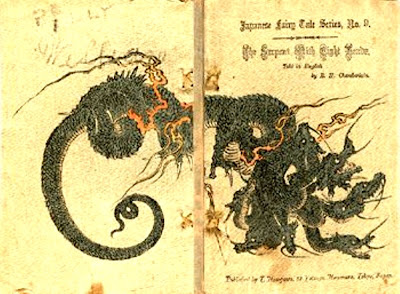 Japanese Fairy Tale Series, No. 9.
The Serpent With Eight Heads.
Told in English
by B. H. Chamberlain.
Published by T. Hasegawa, Tokyo, Japan.